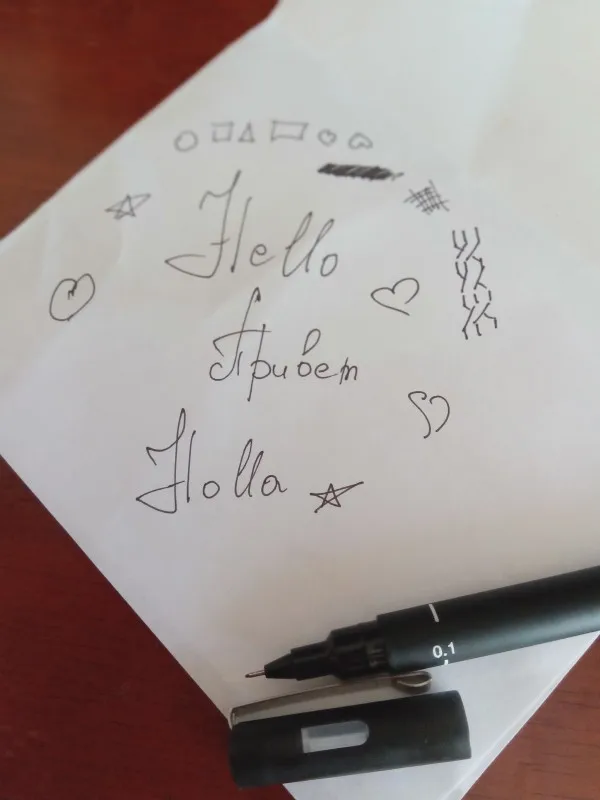 Hello
Привет
Holla
0.1